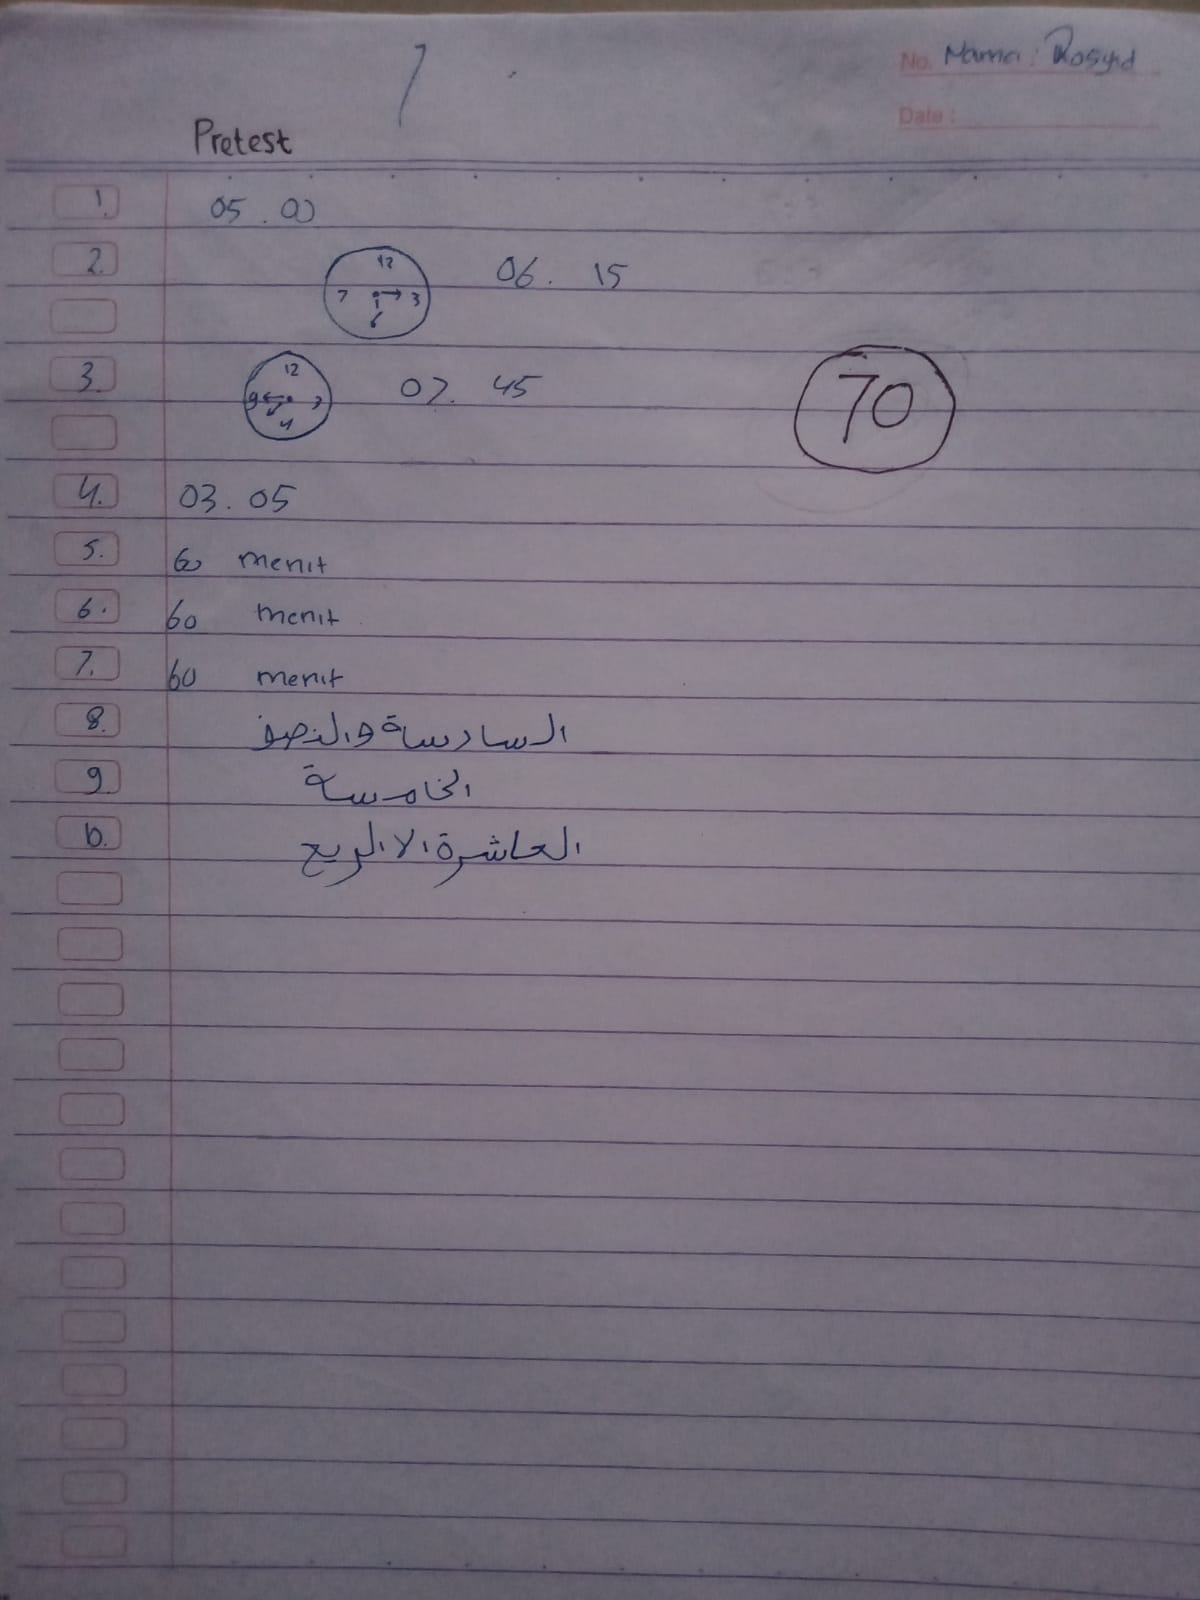 7
No. Nama : Rosyid
Date :
Pretest
1. 05 . 00
2. 12 7 3 6 06 . 15
3. 12 9 3 07 . 45
70
4. 03 . 05
5. 60 menit
6. 60 menit
7. 60 menit
8. السادسة والنصف
9 الخامسة
10. العاشرة الا الربع